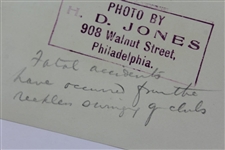 PHOTO BY
H. D. JONES
908 Walnut Street,
Philadelphia.
Fatal accidents
have occurred from the
reckless swinging of clubs